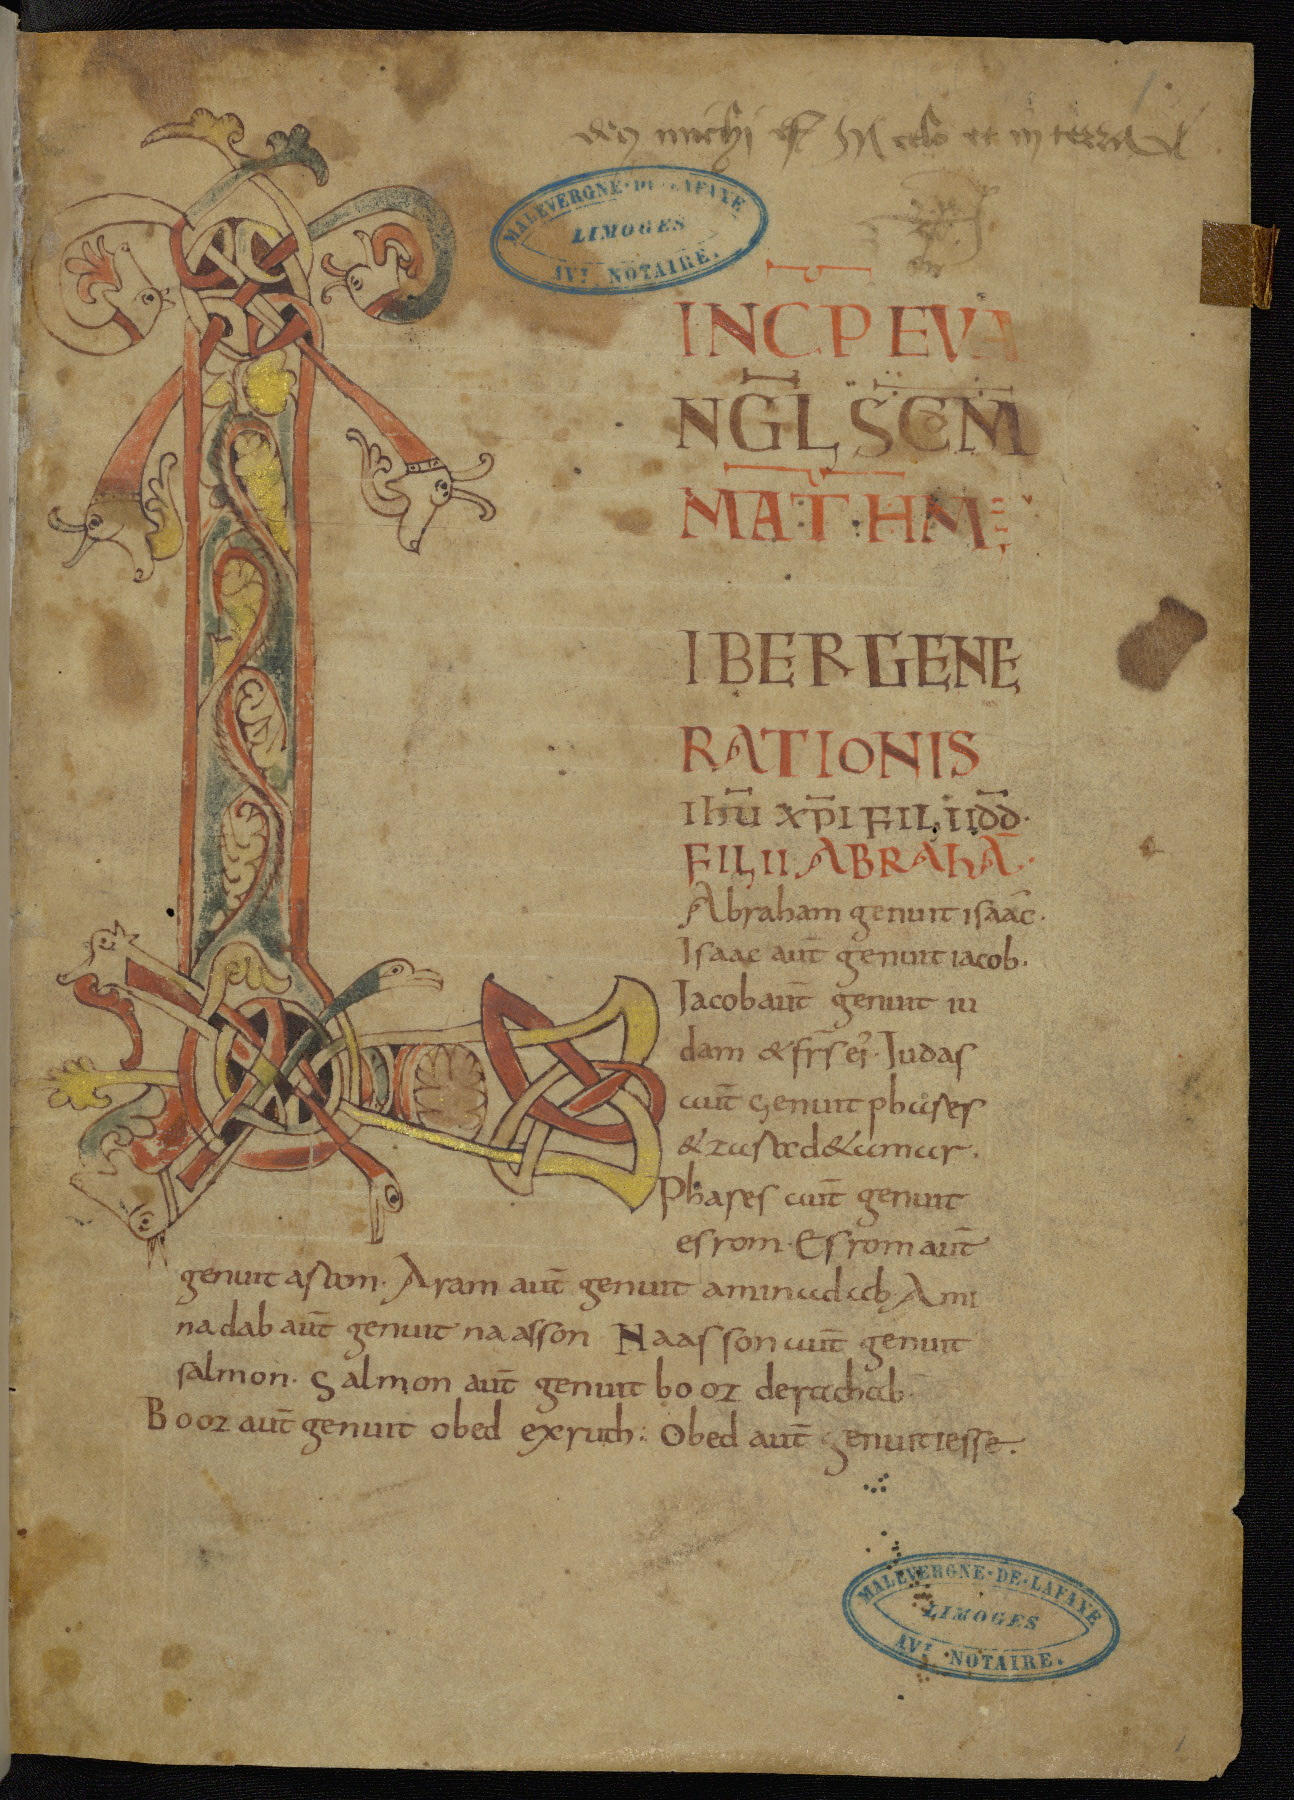 michi est in celo et in terra
MALEVERGNE·DE·LAFAYE
LIMOGES
AVt NOTAIRE.
INCP EVA
NGL SCM
MATHM
L
IBER GENE
RATIONIS
IhU XPI FILII DD·
FILII ABRAHĀ·
Abraham genuit isaac·
Isaac aut̄ genuit iacob·
Jacob aut̄ genuit iu
dam & frs̄ ei· Iudas
aut̄ genuit phares
& zaram de thamar·
Phares aut̄ genuit
esrom· Esrom aut̄
genuit aram· Aram aut̄ genuit aminadab Ami
nadab aut̄ genuit naasson Naasson aut̄ genuit
salmon· Salmon aut̄ genuit booz derachab·
Booz aut̄ genuit obed exruth: Obed aut̄ genuit iesse·
MALEVERGNE·DE·LAFAYE
LIMOGES
AVt NOTAIRE.